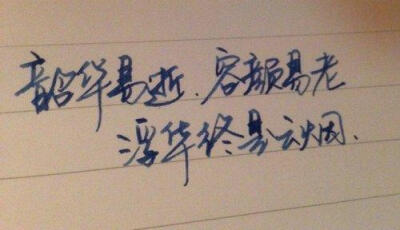 韶华易逝、容颜易老
浮华终是云烟、